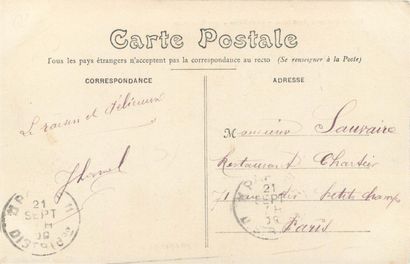 Carte Postale
Tous les pays étrangers n'acceptent pas la correspondance au recto (Se renseigner à la Poste)
CORRESPONDANCE
ADRESSE
Le raisin est délicieux
Monsieur Sauvaire
Restaurant Chartier
rue des petits champs
Paris
21
SEPT
09
21
SEPT
09